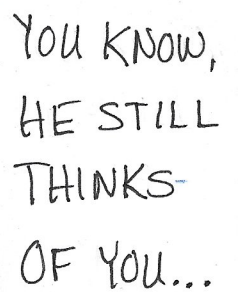 YOU KNOW,
HE STILL
THINKS
OF YOU...